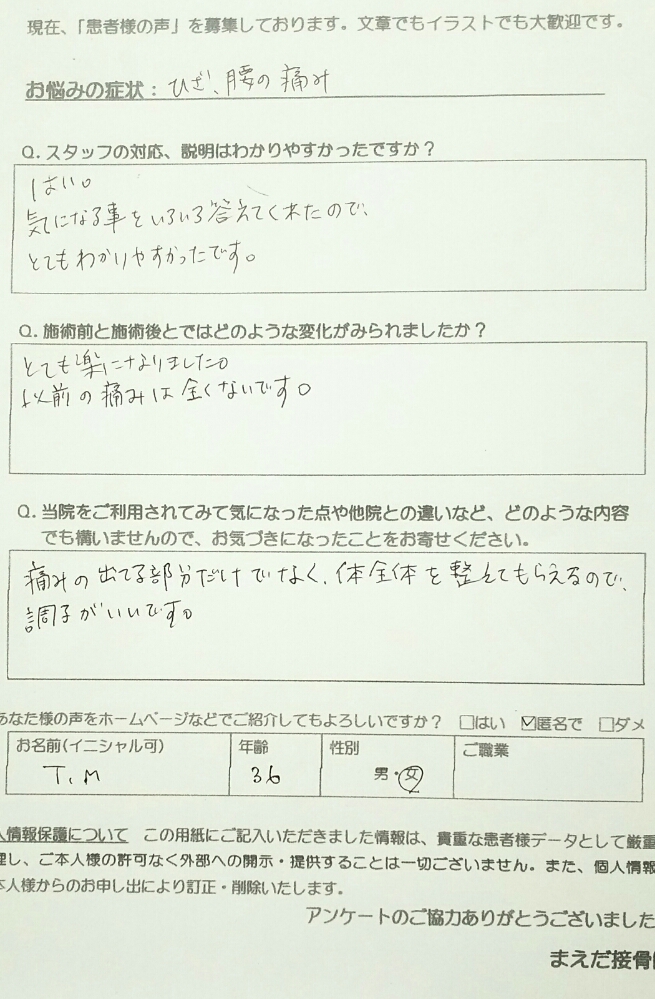 現在、「患者様の声」を募集しております。文章でもイラストでも大歓迎です。
お悩みの症状：ひざ、腰の痛み
Q. スタッフの対応、説明はわかりやすかったですか？
はい。
気になる事をいろいろ答えてくれたので、
とてもわかりやすかったです。
Q. 施術前と施術後とではどのような変化がみられましたか？
とても楽になりました。
以前の痛みは全くないです。
Q. 当院をご利用されてみて気になった点や他院との違いなど、どのような内容
でも構いませんので、お気づきになったことをお寄せください。
痛みの出てる部分だけでなく、体全体を整えてもらえるので、
調子がいいです。
あなた様の声をホームページなどでご紹介してもよろしいですか？ □はい ☑匿名で □ダメ
お名前(イニシャル可) 年齢 性別 ご職業
T.M 36 男・女
人情報保護について この用紙にご記入いただきました情報は、貴重な患者様データとして厳重
理し、ご本人様の許可なく外部への開示・提供することは一切ございません。また、個人情報
本人様からのお申し出により訂正・削除いたします。
アンケートのご協力ありがとうございました
まえだ接骨